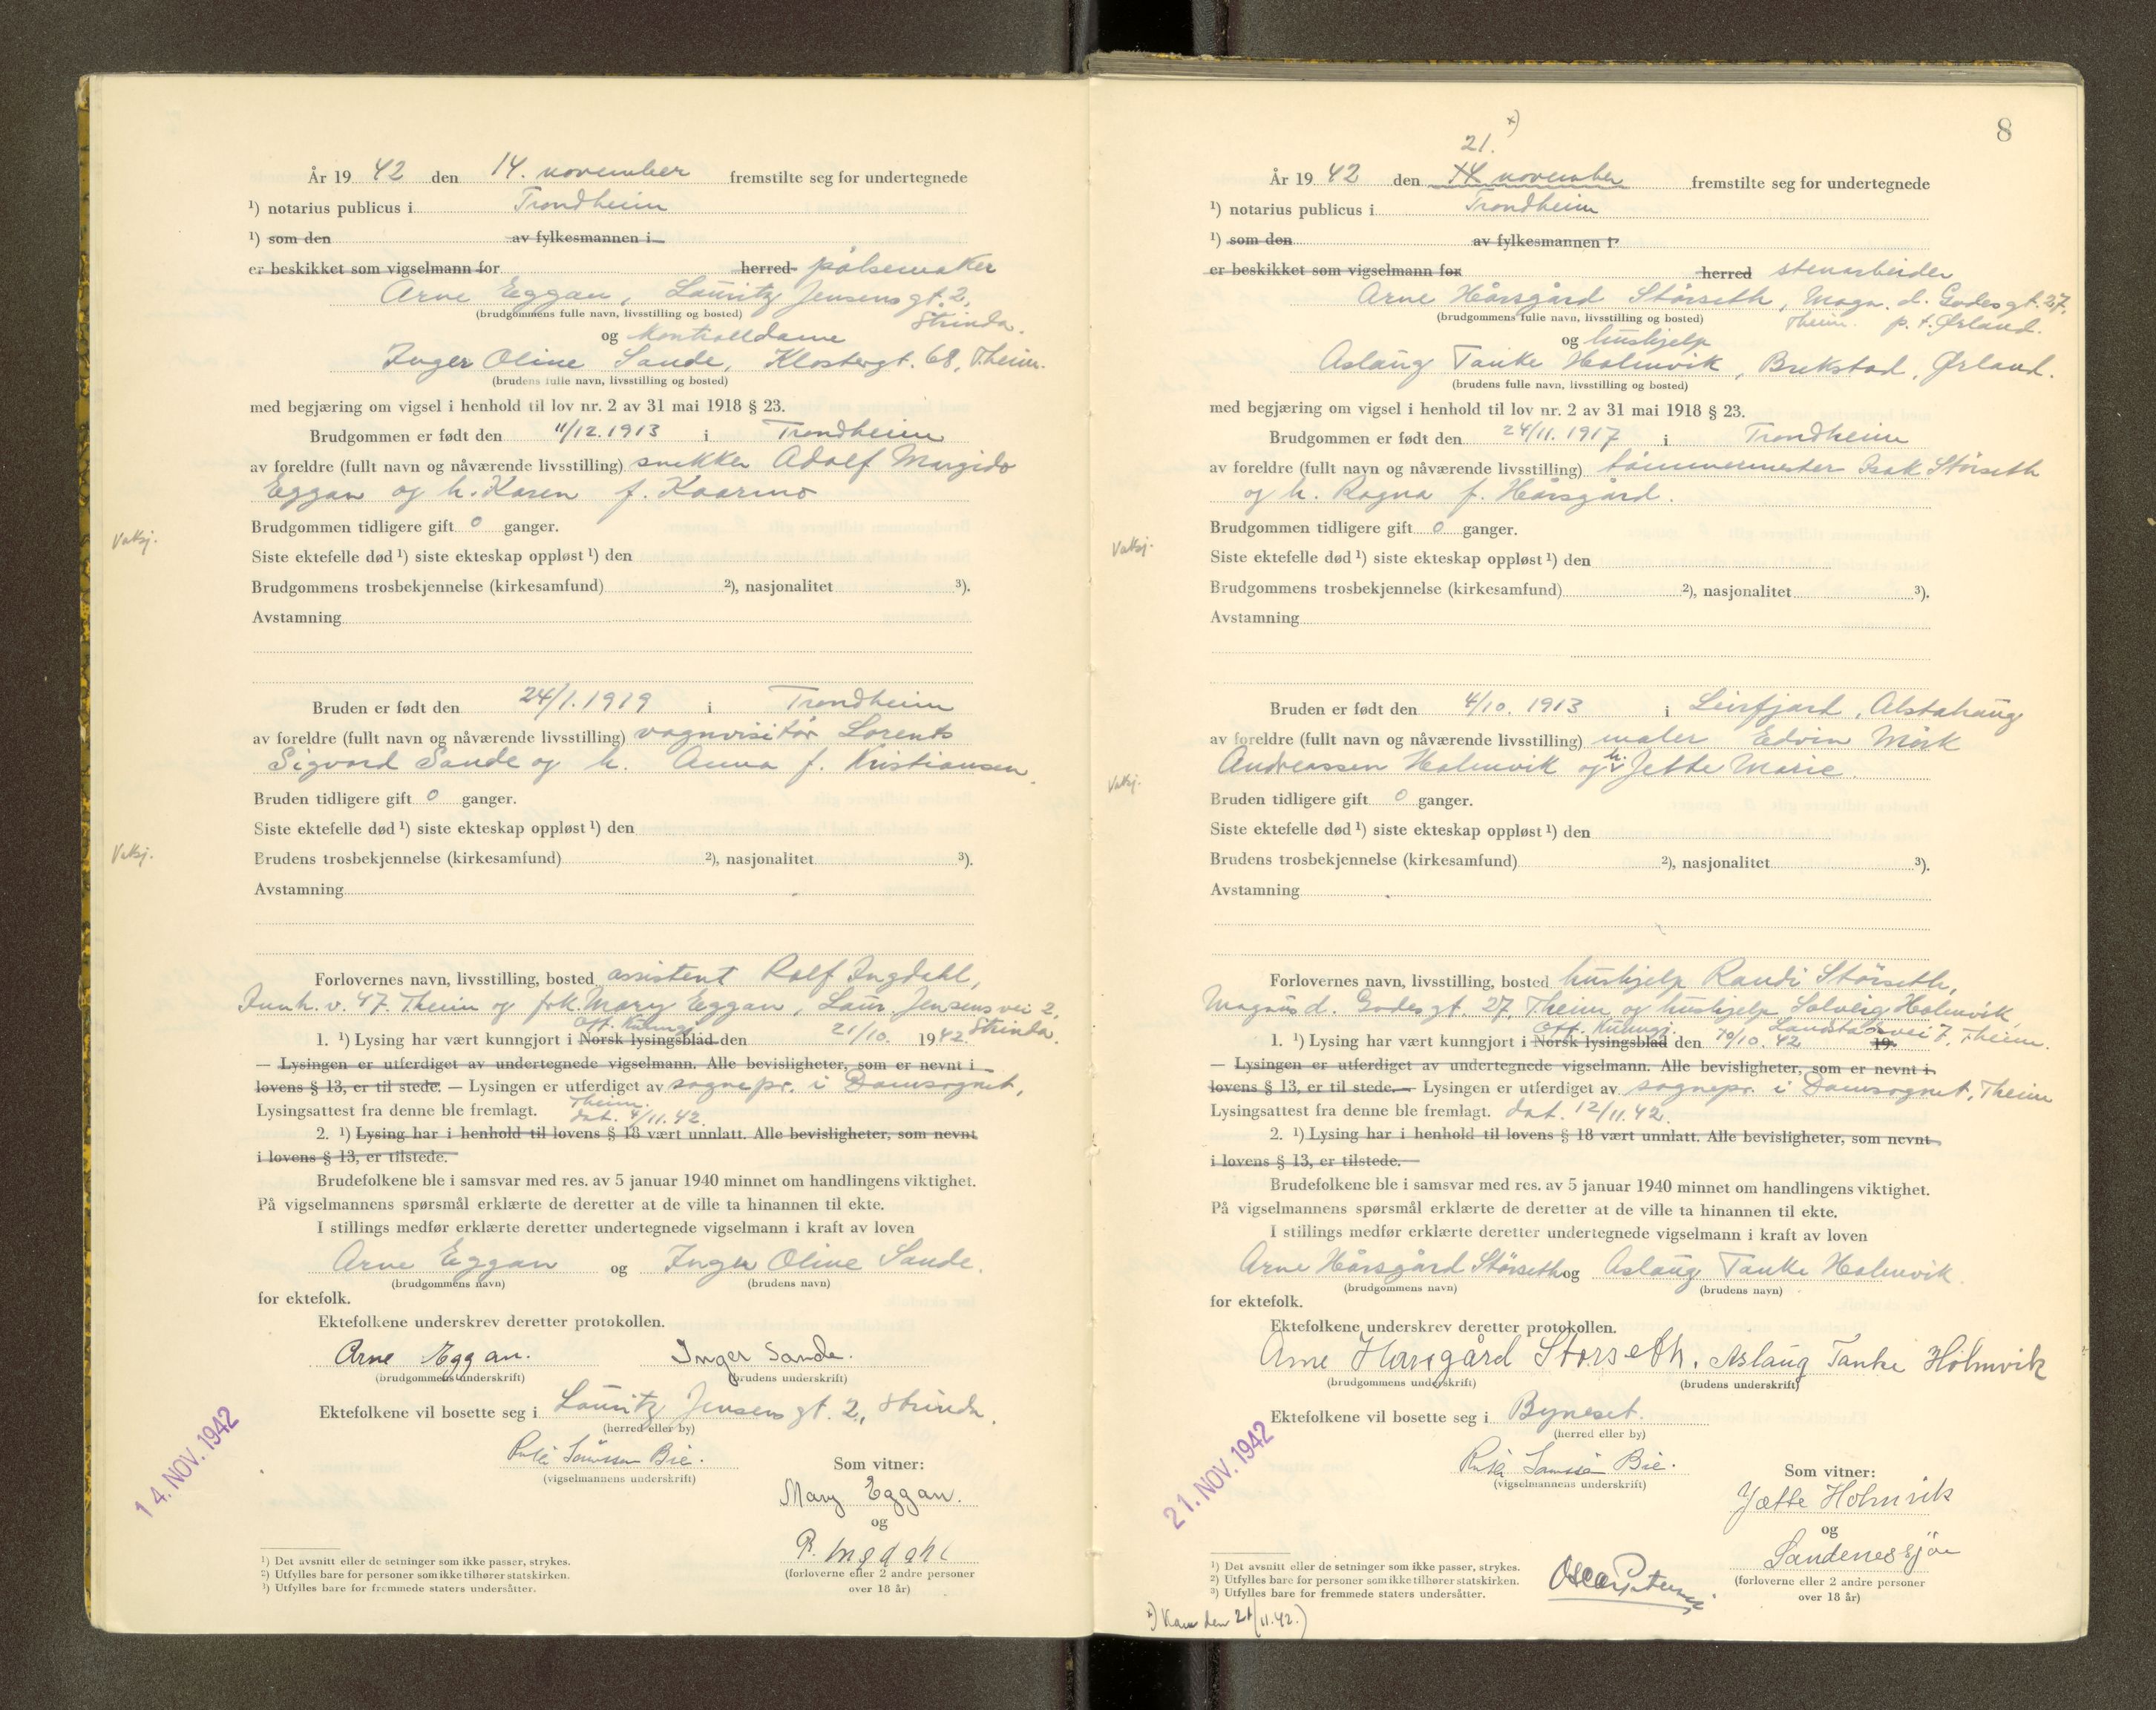 År 19 42 den 14. november fremstilte seg for undertegnede
¹) notarius publicus i Trondheim
¹) som den av fylkesmannen i
er beskikket som vigselmann for herred pølsemaker
Arne Eggan, Lauritz Jensens gt. 2,
(brudgommens fulle navn, livsstilling og bosted) Strinda.
og kontrolldame
Inger Oline Sande, Klostergt. 68, Theim.
(brudens fulle navn, livsstilling og bosted)
med begjæring om vigsel i henhold til lov nr. 2 av 31 mai 1918 § 23.
Brudgommen er født den 11/12.1913 i Trondheim
av foreldre (fullt navn og nåværende livsstilling) snekker Adolf Margido
Eggan og h. Karen f. Kaarmo
Brudgommen tidligere gift 0 ganger.
Vaksj.
Siste ektefelle død ¹) siste ekteskap oppløst ¹) den
Brudgommens trosbekjennelse (kirkesamfund) ²), nasjonalitet ³).
Avstamning
Bruden er født den 24/1.1919 i Trondheim
av foreldre (fullt navn og nåværende livsstilling) vognvisitør Lorents
Sigvard Sande og h. Anna f. Kristiansen.
Bruden tidligere gift 0 ganger.
Siste ektefelle død ¹) siste ekteskap oppløst ¹) den
Vaksj.
Brudens trosbekjennelse (kirkesamfund) ²), nasjonalitet ³).
Avstamning
Forlovernes navn, livsstilling, bosted assistent Rolf Ingdahl,
Innh. v. 47. Theim og frk. Mary Eggan, Laur. Jensens vei 2,
Off. Kunngj. Strinda.
1. ¹) Lysing har vært kunngjort i Norsk lysingsblad den 21/10. 1942.
— Lysingen er utferdiget av undertegnede vigselmann. Alle bevisligheter, som er nevnt i
lovens § 13, er til stede. — Lysingen er utferdiget av sognepr. i Domsognet,
Theim.
Lysingsattest fra denne ble fremlagt. dat. 4/11.42.
2. ¹) Lysing har i henhold til lovens § 18 vært unnlatt. Alle bevisligheter, som nevnt
i lovens § 13, er tilstede.
Brudefolkene ble i samsvar med res. av 5 januar 1940 minnet om handlingens viktighet.
På vigselmannens spørsmål erklærte de deretter at de ville ta hinannen til ekte.
I stillings medfør erklærte deretter undertegnede vigselmann i kraft av loven
Arne Eggan og Inger Oline Sande.
(brudgommens navn) (brudens navn)
for ektefolk.
Ektefolkene underskrev deretter protokollen.
Arne Eggan. Inger Sande.
(brudgommens underskrift) (brudens underskrift)
Ektefolkene vil bosette seg i Lauritz Jensens gt. 2, Strinda.
(herred eller by)
14. NOV. 1942
Bie.
(vigselmannens underskrift)
Som vitner:
Mary Eggan.
og
R. Ingdahl
(forloverne eller 2 andre personer
over 18 år)
¹) Det avsnitt eller de setninger som ikke passer, strykes.
²) Utfylles bare for personer som ikke tilhører statskirken.
³) Utfylles bare for fremmede staters undersåtter.
8
21. x)
År 19 42 den 14 november fremstilte seg for undertegnede
¹) notarius publicus i Trondheim
¹) som den av fylkesmannen i
er beskikket som vigselmann for herred stenarbeider
Arne Hårsgård Størseth, Magn. d. Godes gt. 27,
(brudgommens fulle navn, livsstilling og bosted) Theim. p. t. Ørland.
og hushjelp
Aslaug Tanke Holmvik, Brekstad, Ørland.
(brudens fulle navn, livsstilling og bosted)
med begjæring om vigsel i henhold til lov nr. 2 av 31 mai 1918 § 23.
Brudgommen er født den 24/11.1917 i Trondheim
av foreldre (fullt navn og nåværende livsstilling) tømmermester Isak Størseth
og h. Ragna f. Hårsgård.
Brudgommen tidligere gift 0 ganger.
Vaksj.
Siste ektefelle død ¹) siste ekteskap oppløst ¹) den
Brudgommens trosbekjennelse (kirkesamfund) ²), nasjonalitet ³).
Avstamning
Bruden er født den 4/10. 1913 i Leirfjord, Alstahaug
av foreldre (fullt navn og nåværende livsstilling) maler Edvin Mörk
Andreassen Holmvik og h. Jette Marie.
Vaksj.
Bruden tidligere gift 0 ganger.
Siste ektefelle død ¹) siste ekteskap oppløst ¹) den
Brudens trosbekjennelse (kirkesamfund) ²), nasjonalitet ³).
Avstamning
Forlovernes navn, livsstilling, bosted hushjelp Randi Størseth,
Magnus d. Godes gt. 27, Theim og hushjelp Solveig Holmvik,
Off. Kunngj. Landstadsvei 7, Theim.
1. ¹) Lysing har vært kunngjort i Norsk lysingsblad den 10/10. 42 19
— Lysingen er utferdiget av undertegnede vigselmann. Alle bevisligheter, som er nevnt i
lovens § 13, er til stede. — Lysingen er utferdiget av sognepr. i Domsognet, Theim
Lysingsattest fra denne ble fremlagt. dat. 12/11.42.
2. ¹) Lysing har i henhold til lovens § 18 vært unnlatt. Alle bevisligheter, som nevnt
i lovens § 13, er tilstede.
Brudefolkene ble i samsvar med res. av 5 januar 1940 minnet om handlingens viktighet.
På vigselmannens spørsmål erklærte de deretter at de ville ta hinannen til ekte.
I stillings medfør erklærte deretter undertegnede vigselmann i kraft av loven
Arne Hårsgård Størseth og Aslaug Tanke Holmvik.
(brudgommens navn) (brudens navn)
for ektefolk.
Ektefolkene underskrev deretter protokollen.
Arne Hårsgård Størseth. Aslaug Tanke Holmvik
(brudgommens underskrift) (brudens underskrift)
Ektefolkene vil bosette seg i Byneset.
(herred eller by)
21. NOV. 1942
Bie.
(vigselmannens underskrift)
Som vitner:
Jætte Holmvik
og
Sandenessjøe
(forloverne eller 2 andre personer
over 18 år)
¹) Det avsnitt eller de setninger som ikke passer, strykes.
²) Utfylles bare for personer som ikke tilhører statskirken.
³) Utfylles bare for fremmede staters undersåtter.
x) Kom den 21/11.42.)